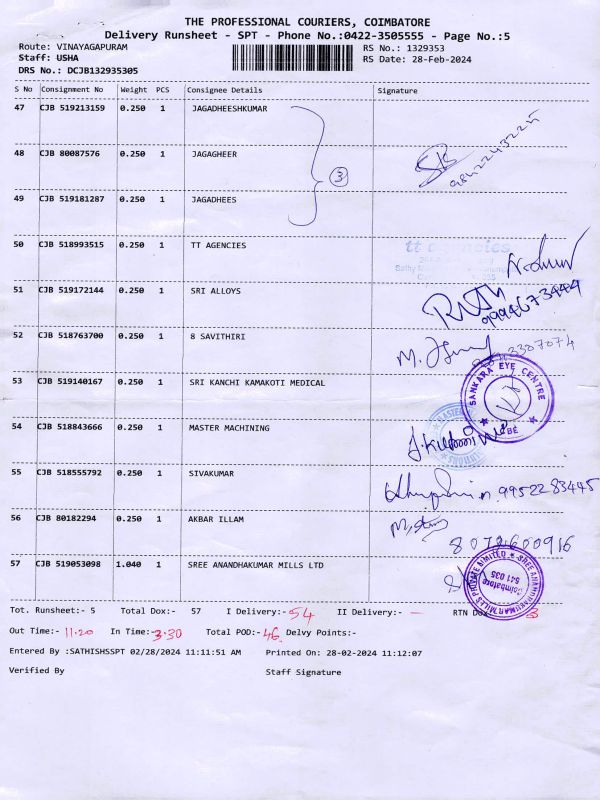 THE PROFESSIONAL COURIERS, COIMBATORE
Delivery Runsheet - SPT - Phone No.:0422-3505555 - Page No.:5
Route: VINAYAGAPURAM RS No.: 1329353
Staff: USHA RS Date: 28-Feb-2024
DRS No.: DCJB132935305
S No Consignment No Weight PCS Consignee Details Signature
47 CJB 519213159 0.250 1 JAGADHEESHKUMAR
48 CJB 80087576 0.250 1 JAGAGHEER
3
49 CJB 519181287 0.250 1 JAGADHEES
50 CJB 518993515 0.250 1 TT AGENCIES
tt agencies
51 CJB 519172144 0.250 1 SRI ALLOYS
9994673444
52 CJB 518763700 0.250 1 8 SAVITHIRI
53 CJB 519140167 0.250 1 SRI KANCHI KAMAKOTI MEDICAL
SANKARA EYE CENTRE
54 CJB 518843666 0.250 1 MASTER MACHINING
55 CJB 518555792 0.250 1 SIVAKUMAR
9952283445
56 CJB 80182294 0.250 1 AKBAR ILLAM
8072600916
57 CJB 519053098 1.040 1 SREE ANANDHAKUMAR MILLS LTD
SREE ANANDHAKUMAR MILLS PRIVATE LIMITED
Coimbatore
641 035
Tot. Runsheet:- 5 Total Dox:- 57 I Delivery:- 54 II Delivery:- — RTN Dox:- 3
Out Time:- 11.20 In Time:- 3.30 Total POD:- 46 Delvy Points:-
Entered By :SATHISHSSPT 02/28/2024 11:11:51 AM Printed On: 28-02-2024 11:12:07
Verified By Staff Signature